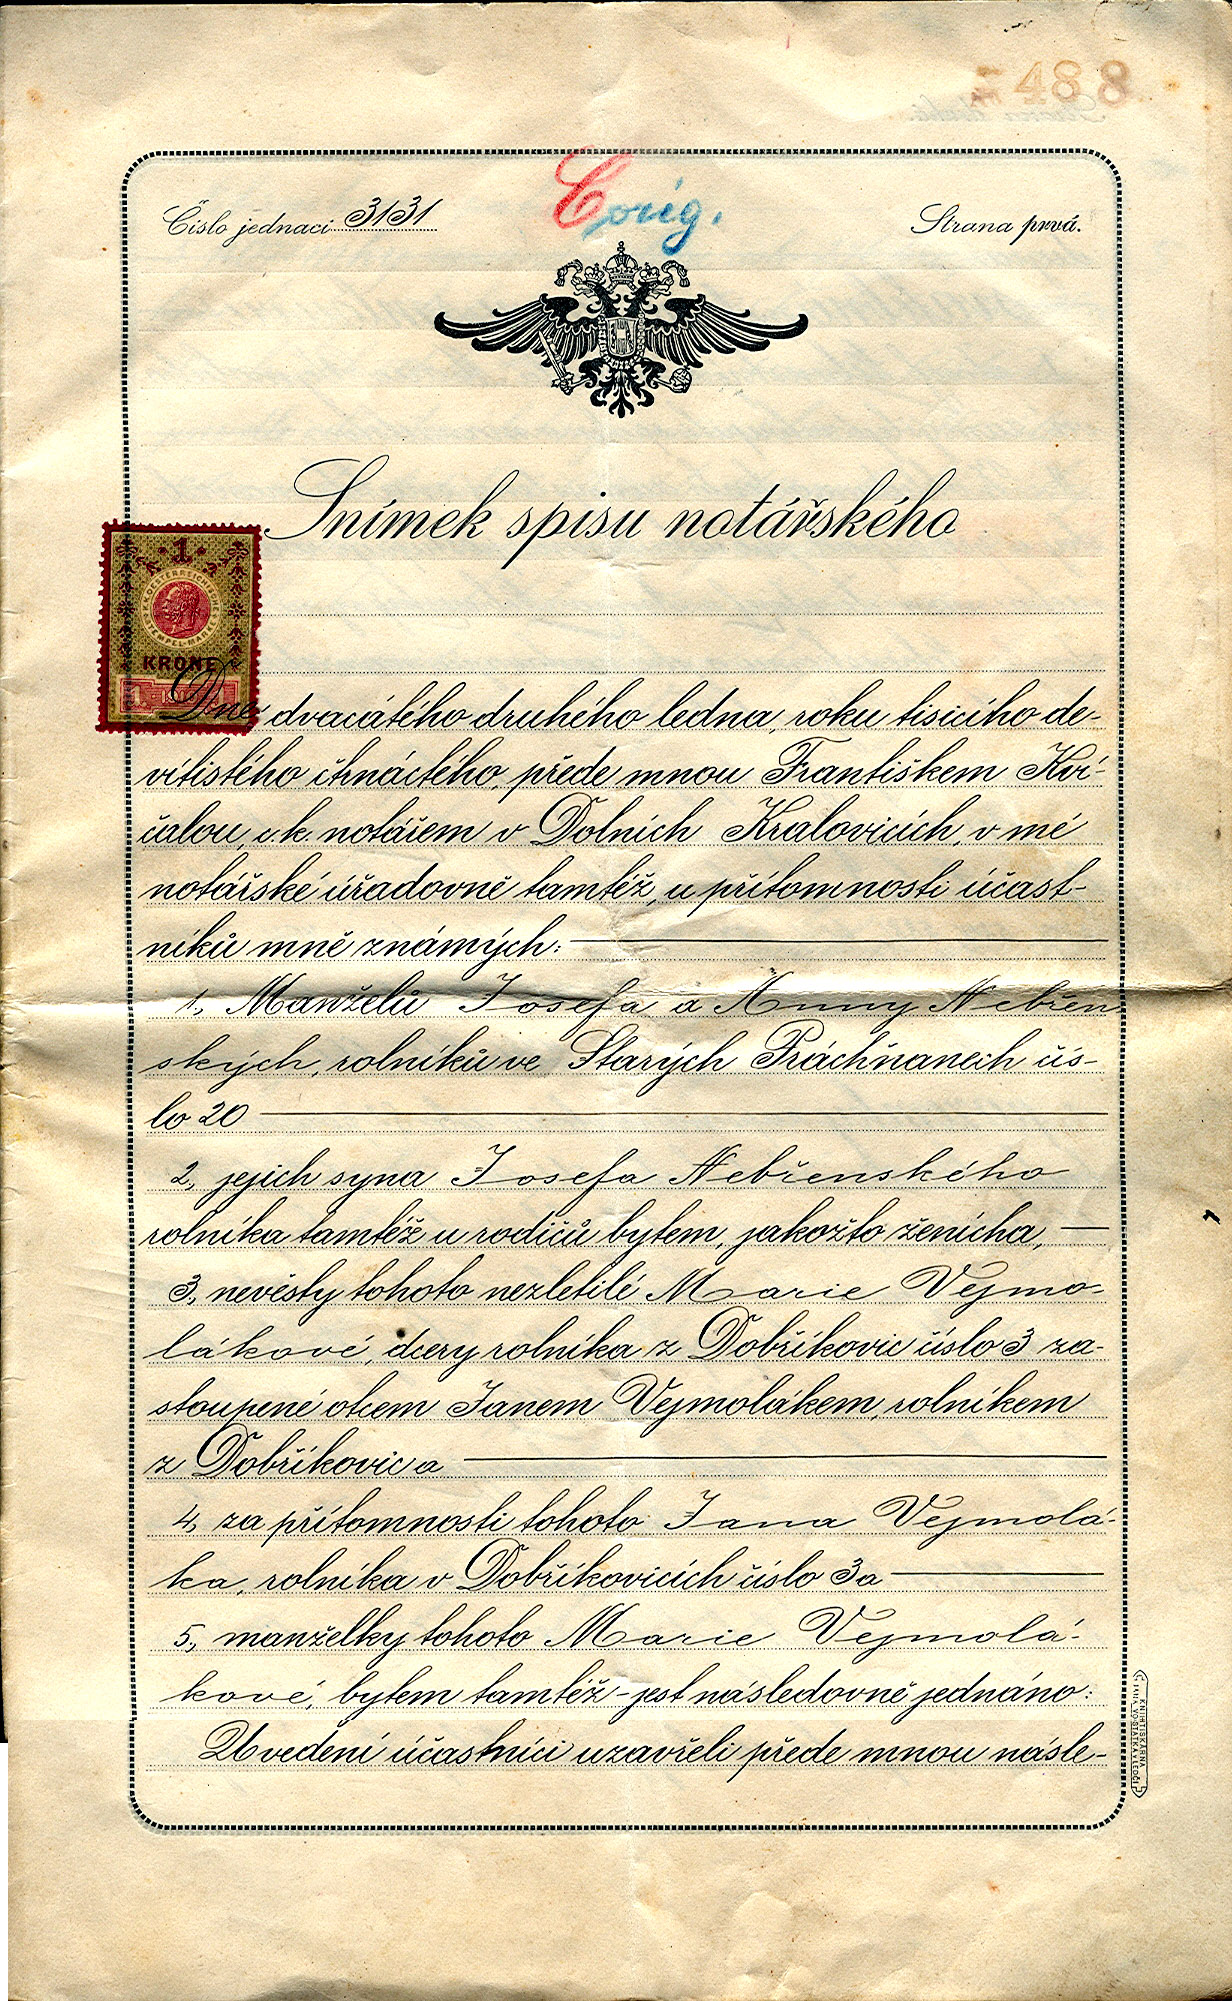 488
Číslo jednací 3131
Corig.
Strana prvá.
Snímek spisu notářského
1
K.K. OESTERREICHISCHE STEMPEL-MARKE
KRONE
Dne dvacátého druhého ledna, roku tisícího de-
vítistého čtrnáctého, přede mnou Františkem Kvi-
čalou, c.k. notářem v Dolních Kralovicích, v mé
notářské úřadovně tamtéž, u přítomnosti účast-
níků mně známých:
1, Manželů Josefa a Anny Nebřen
ských, rolníků ve Starých Práchňanech čís-
lo 20
2, jejich syna Josefa Nebřenského
rolníka tamtéž u rodičů bytem, jakožto ženicha,
3, nevěsty tohoto nezletilé Marie Vejmo-
lákové, dcery rolníka z Dobříkovic číslo 3 za-
stoupené otcem Janem Vejmolákem, rolníkem
z Dobříkovic a
4, za přítomnosti tohoto Jana Vejmolá-
ka, rolníka v Dobříkovicích číslo 3 a
5, manželky tohoto Marie Vejmolá-
kové, bytem tamtéž - jest následovně jednáno:
Uvedení účastníci uzavřeli přede mnou násle-
KNIHTISKÁRNA